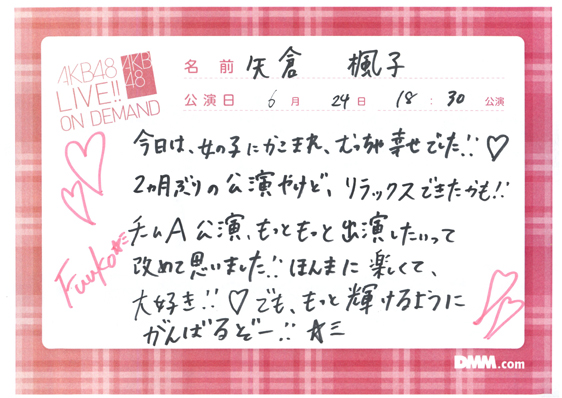 AKB48
LIVE!!
ON DEMAND
AKB
48
名前 矢倉 楓子
公演日 6月 24日 18:30 公演
今日は、女の子にかこまれ、むっちゃ幸せでした!!♡
2ヵ月ぶりの公演やけど、リラックスできたかも!!
チームA公演、もっともっと出演したいって
改めて思いました!!ほんまに楽しくて、
大好き!!♡でも、もっと輝けるように
がんばるぞー!!☆ミ
Fuuko☆ミ
DMM.com